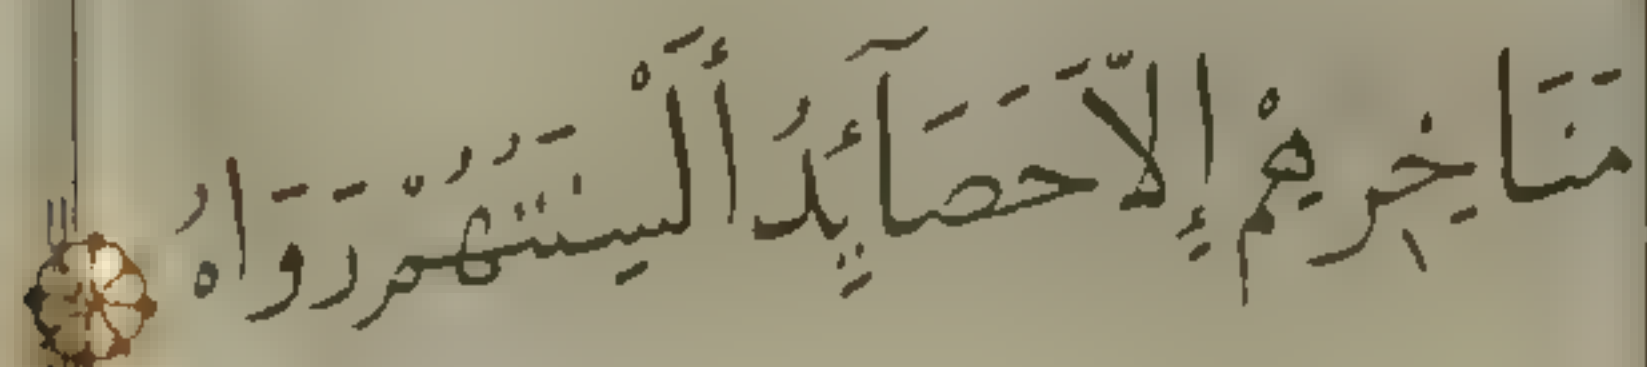 مَنَاخِرِهِمْ إِلَّا حَصَآئِدُ أَلْسِنَتِهِمْ رَوَاهُ